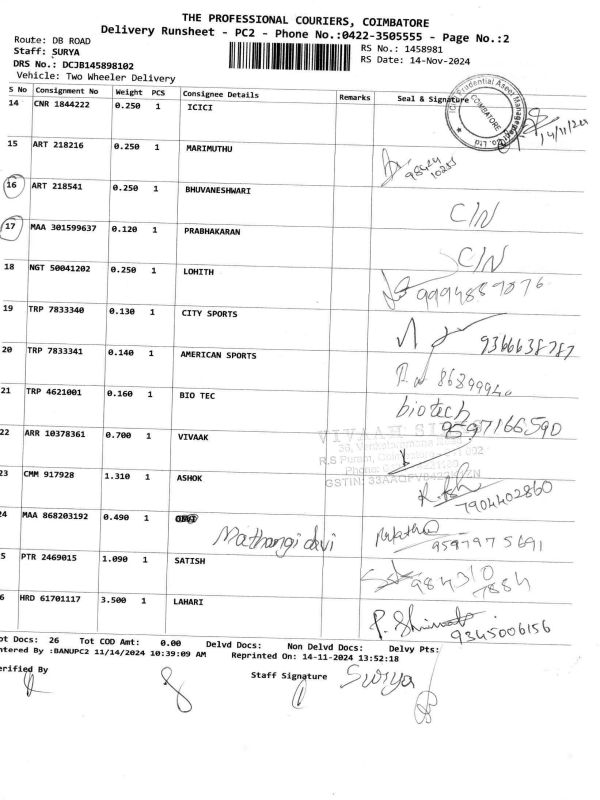 THE PROFESSIONAL COURIERS, COIMBATORE
Delivery Runsheet - PC2 - Phone No.:0422-3505555 - Page No.:2
Route: DB ROAD
RS No.: 1458981
Staff: SURYA
RS Date: 14-Nov-2024
DRS No.: DCJB145898102
Vehicle: Two Wheeler Delivery
S No Consignment No Weight PCS Consignee Details Remarks Seal & Signature
14 CNR 1844222 0.250 1 ICICI
COIMBATORE
14/11/2024
15 ART 218216 0.250 1 MARIMUTHU
98424
10255
16 ART 218541 0.250 1 BHUVANESHWARI C/N
17 MAA 301599637 0.120 1 PRABHAKARAN C/N
18 NGT 50041202 0.250 1 LOHITH 9994889876
19 TRP 7833340 0.130 1 CITY SPORTS 9366638787
20 TRP 7833341 0.140 1 AMERICAN SPORTS
21 TRP 4621001 0.160 1 BIO TEC biotech
9597166590
22 ARR 10378361 0.700 1 VIVAAK
23 CMM 917928 1.310 1 ASHOK
7904402860
24 MAA 868203192 0.490 1
Mathangi davi
9597975691
5 PTR 2469015 1.090 1 SATISH 984310
7884
6 HRD 61701117 3.500 1 LAHARI
9345006156
ot Docs: 26 Tot COD Amt: 0.00 Delvd Docs: Non Delvd Docs: Delvy Pts:
ntered By :BANUPC2 11/14/2024 10:39:09 AM Reprinted On: 14-11-2024 13:52:18
erified By Staff Signature Surya